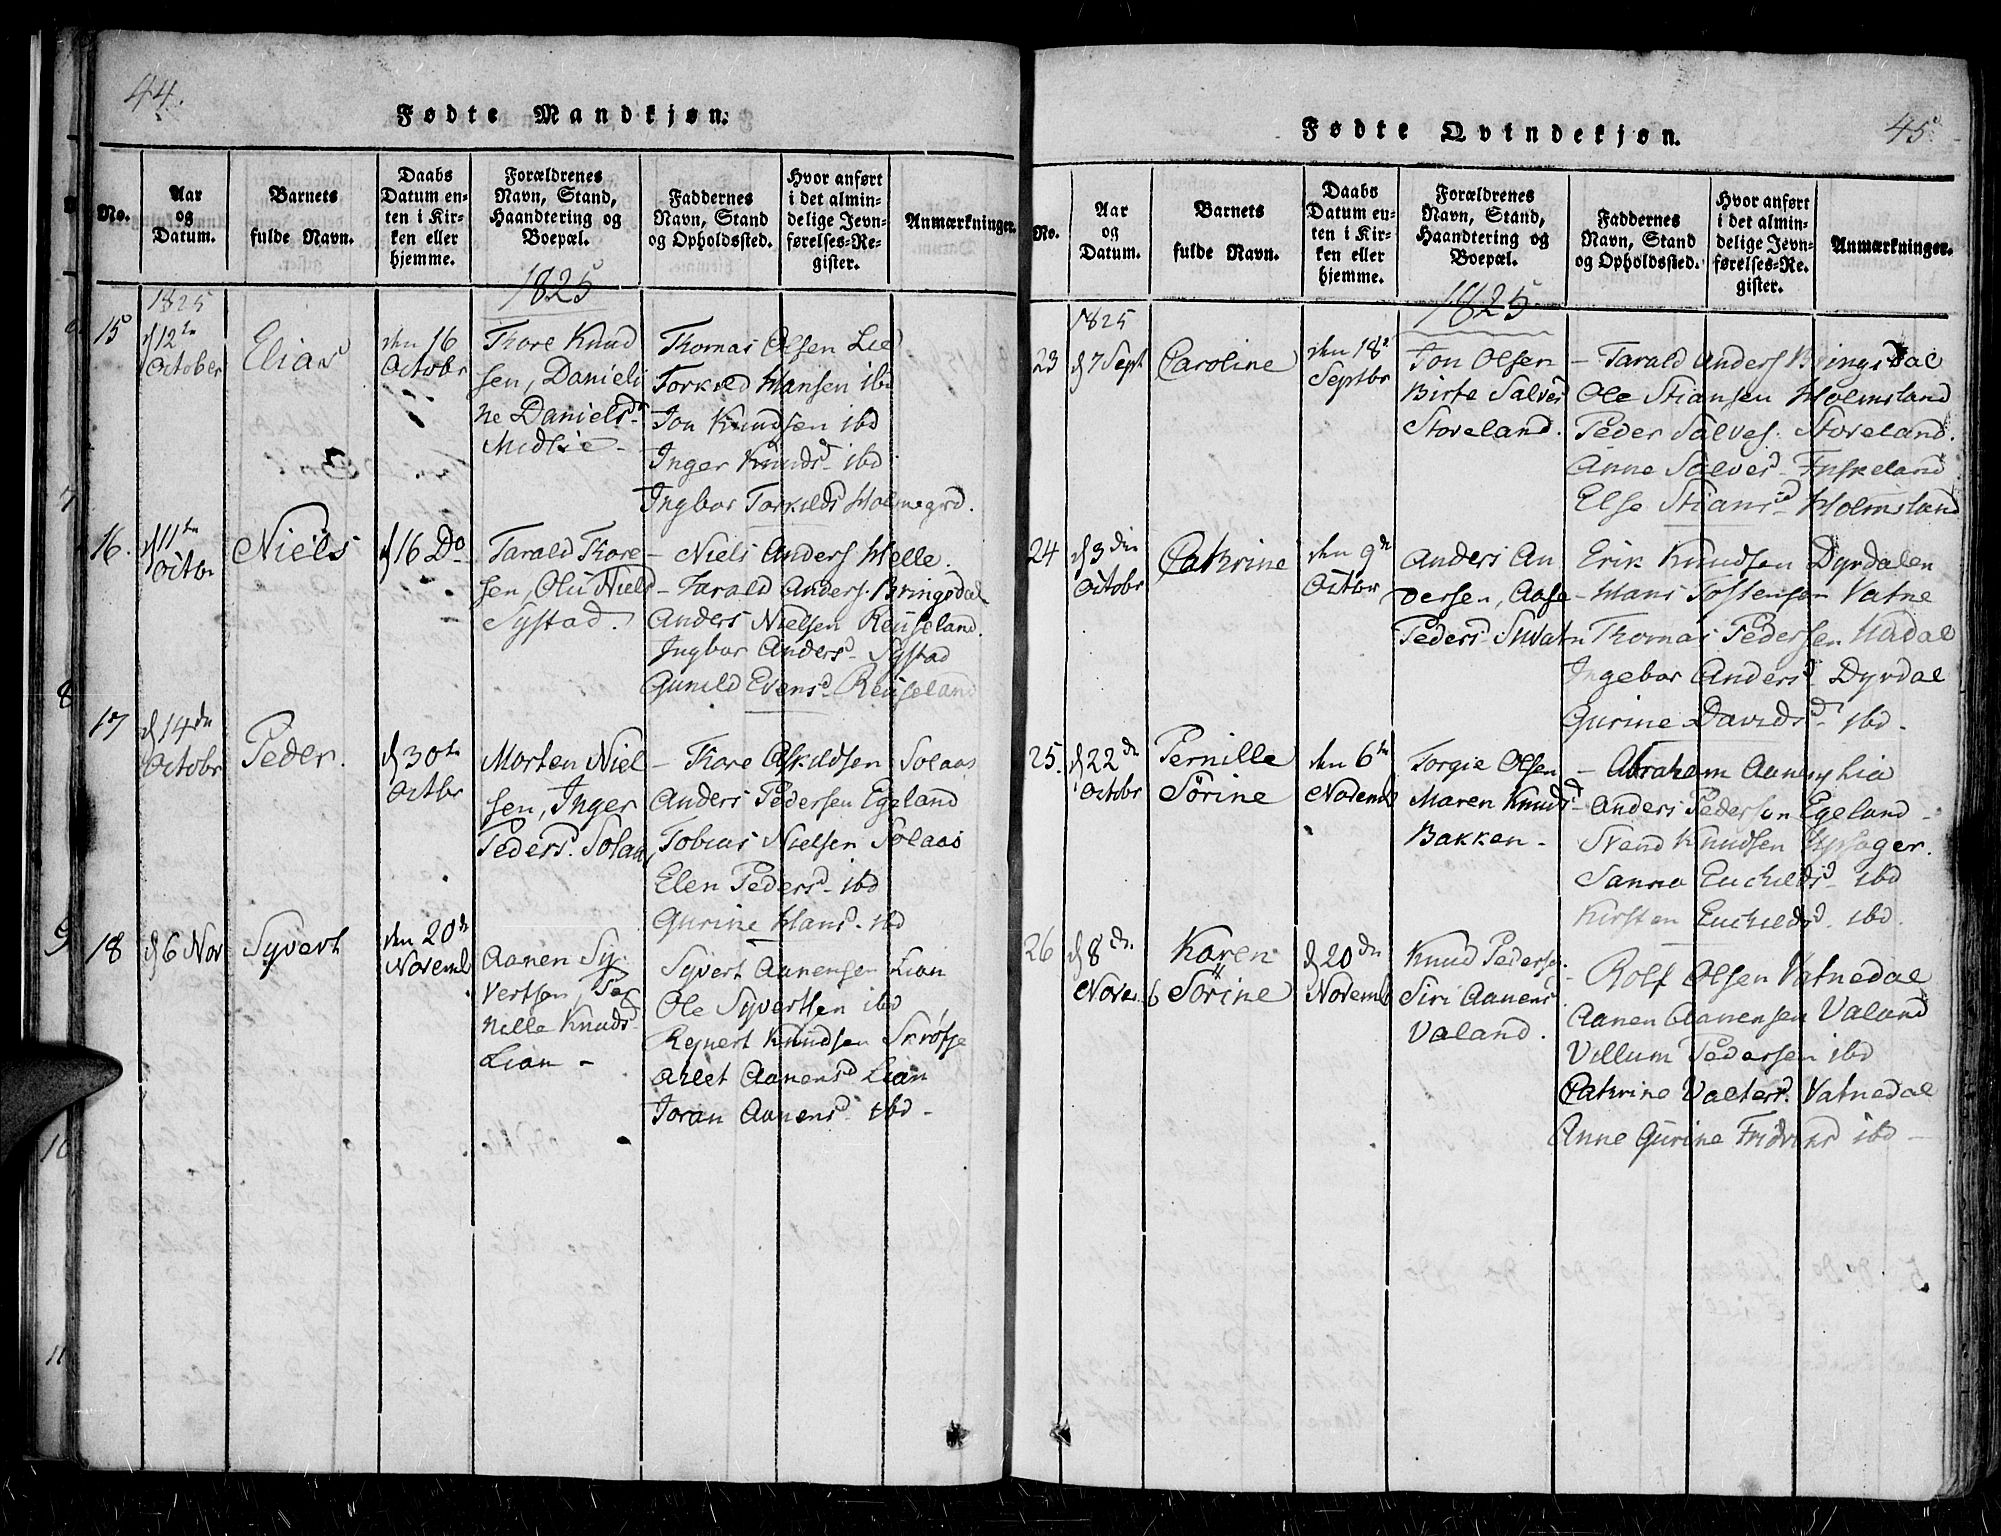 44.
Fødte Mandkjøn.
No.
Aar
og
Datum.
Barnets
fulde Navn.
Daabs
Datum en-
ten i Kir-
ken eller
hjemme.
Forældrenes
Navn, Stand,
Haandtering og
Boepæl.
Faddernes
Navn, Stand
og Opholdssted.
Hvor anført
i det almin-
delige Jevn-
førelses-Re-
gister.
Anmærkninger.
1825
15
1825
d 12te
October
Elias
den 16
Octobr
Thore Knud
sen, Danieli
ne Danielsd
Midlie
Thomas Olsen Lie
Torkild Hansen ibd
Jon Knudsen ibd
Inger Knudsd ibd
Ingbor Torkilds Holmegrd.
16.
d 11te
Octbr
Niels
d 16 Do
Tarald Thore
sen, Oliv Nielsd
Systad.
Niels Anders Helle.
Tarald Anders. Bringsdal
Anders Nielsen Reuseland.
Ingbor Andersd Systad
Gunild Evensd Reuseland
17
d 14de
Octobr
Peder.
d 30te
Octbr
Morten Niel
sen, Inger
Peders. Solaas
Thore Askildsen Solaas
Anders Pedersen Egeland
Tobias Nielsen Solaas
Elen Pedersd ibd
Gurine Hansd ibd
18
d 6 Nov
Syvert
den 20de
Novemb
Aanen Sy
vertsen, Per
nille Knudsd
Lian
Syvert Aanensen Lian
Ole Syvertsen ibd
Reynert Knudsen
Aanensd Lian
Joran Aanensd ibd
45
Fødte Qvindekjøn.
No.
Aar
og
Datum.
Barnets
fulde Navn.
Daabs
Datum en-
ten i Kir-
ken eller
hjemme.
Forældrenes
Navn, Stand,
Haandtering og
Boepæl.
Faddernes
Navn, Stand
og Opholdssted.
Hvor anført
i det almin-
delige Jevn-
førelses-Re-
gister.
Anmærkninger.
1825
23
1825
d 7 Sept
Caroline
den 18
Septbr
Jon Olsen
Birte Salvesd
Storeland.
Tarald Anders Bringsdal
Ole Stiansen Holmsland
Peder Salves. Storeland.
Anne Salvesd Fuskeland
Else Stiansd Holmsland
24
d 3die
Octobr
Cathrine
den 9de
Octbr
Anders An
dersen, Aase
Pedersd
Erik Knudsen Dyrdalen
Hans Tostensen Vatne
Thomas Pedersen Urdal
Ingebor Andersd Dyrdal
Gurine Davidsd ibd.
25.
d 22de
Octobr
Pernille
Sørine
den 6te
Novemb
Torgie Olsen
Maren Knudsd
Bakken
Abraham Aanens
Anders Pedersen Egeland
Svend Knudsen Upsager.
Sanna Euchildsd ibd
Kirsten Euchildsd ibd.
26
d 8de
Novemb
Karen
Sörine
d 20de
Novemb
Knud Peders.
Siri Aanensd
Valand.
Rolf Olsen Vatnedal
Aanen Aanensen Valand
Villum Pedersen ibd
Cathrine Valtersd. Vatnedal
Anne Gurine ibd